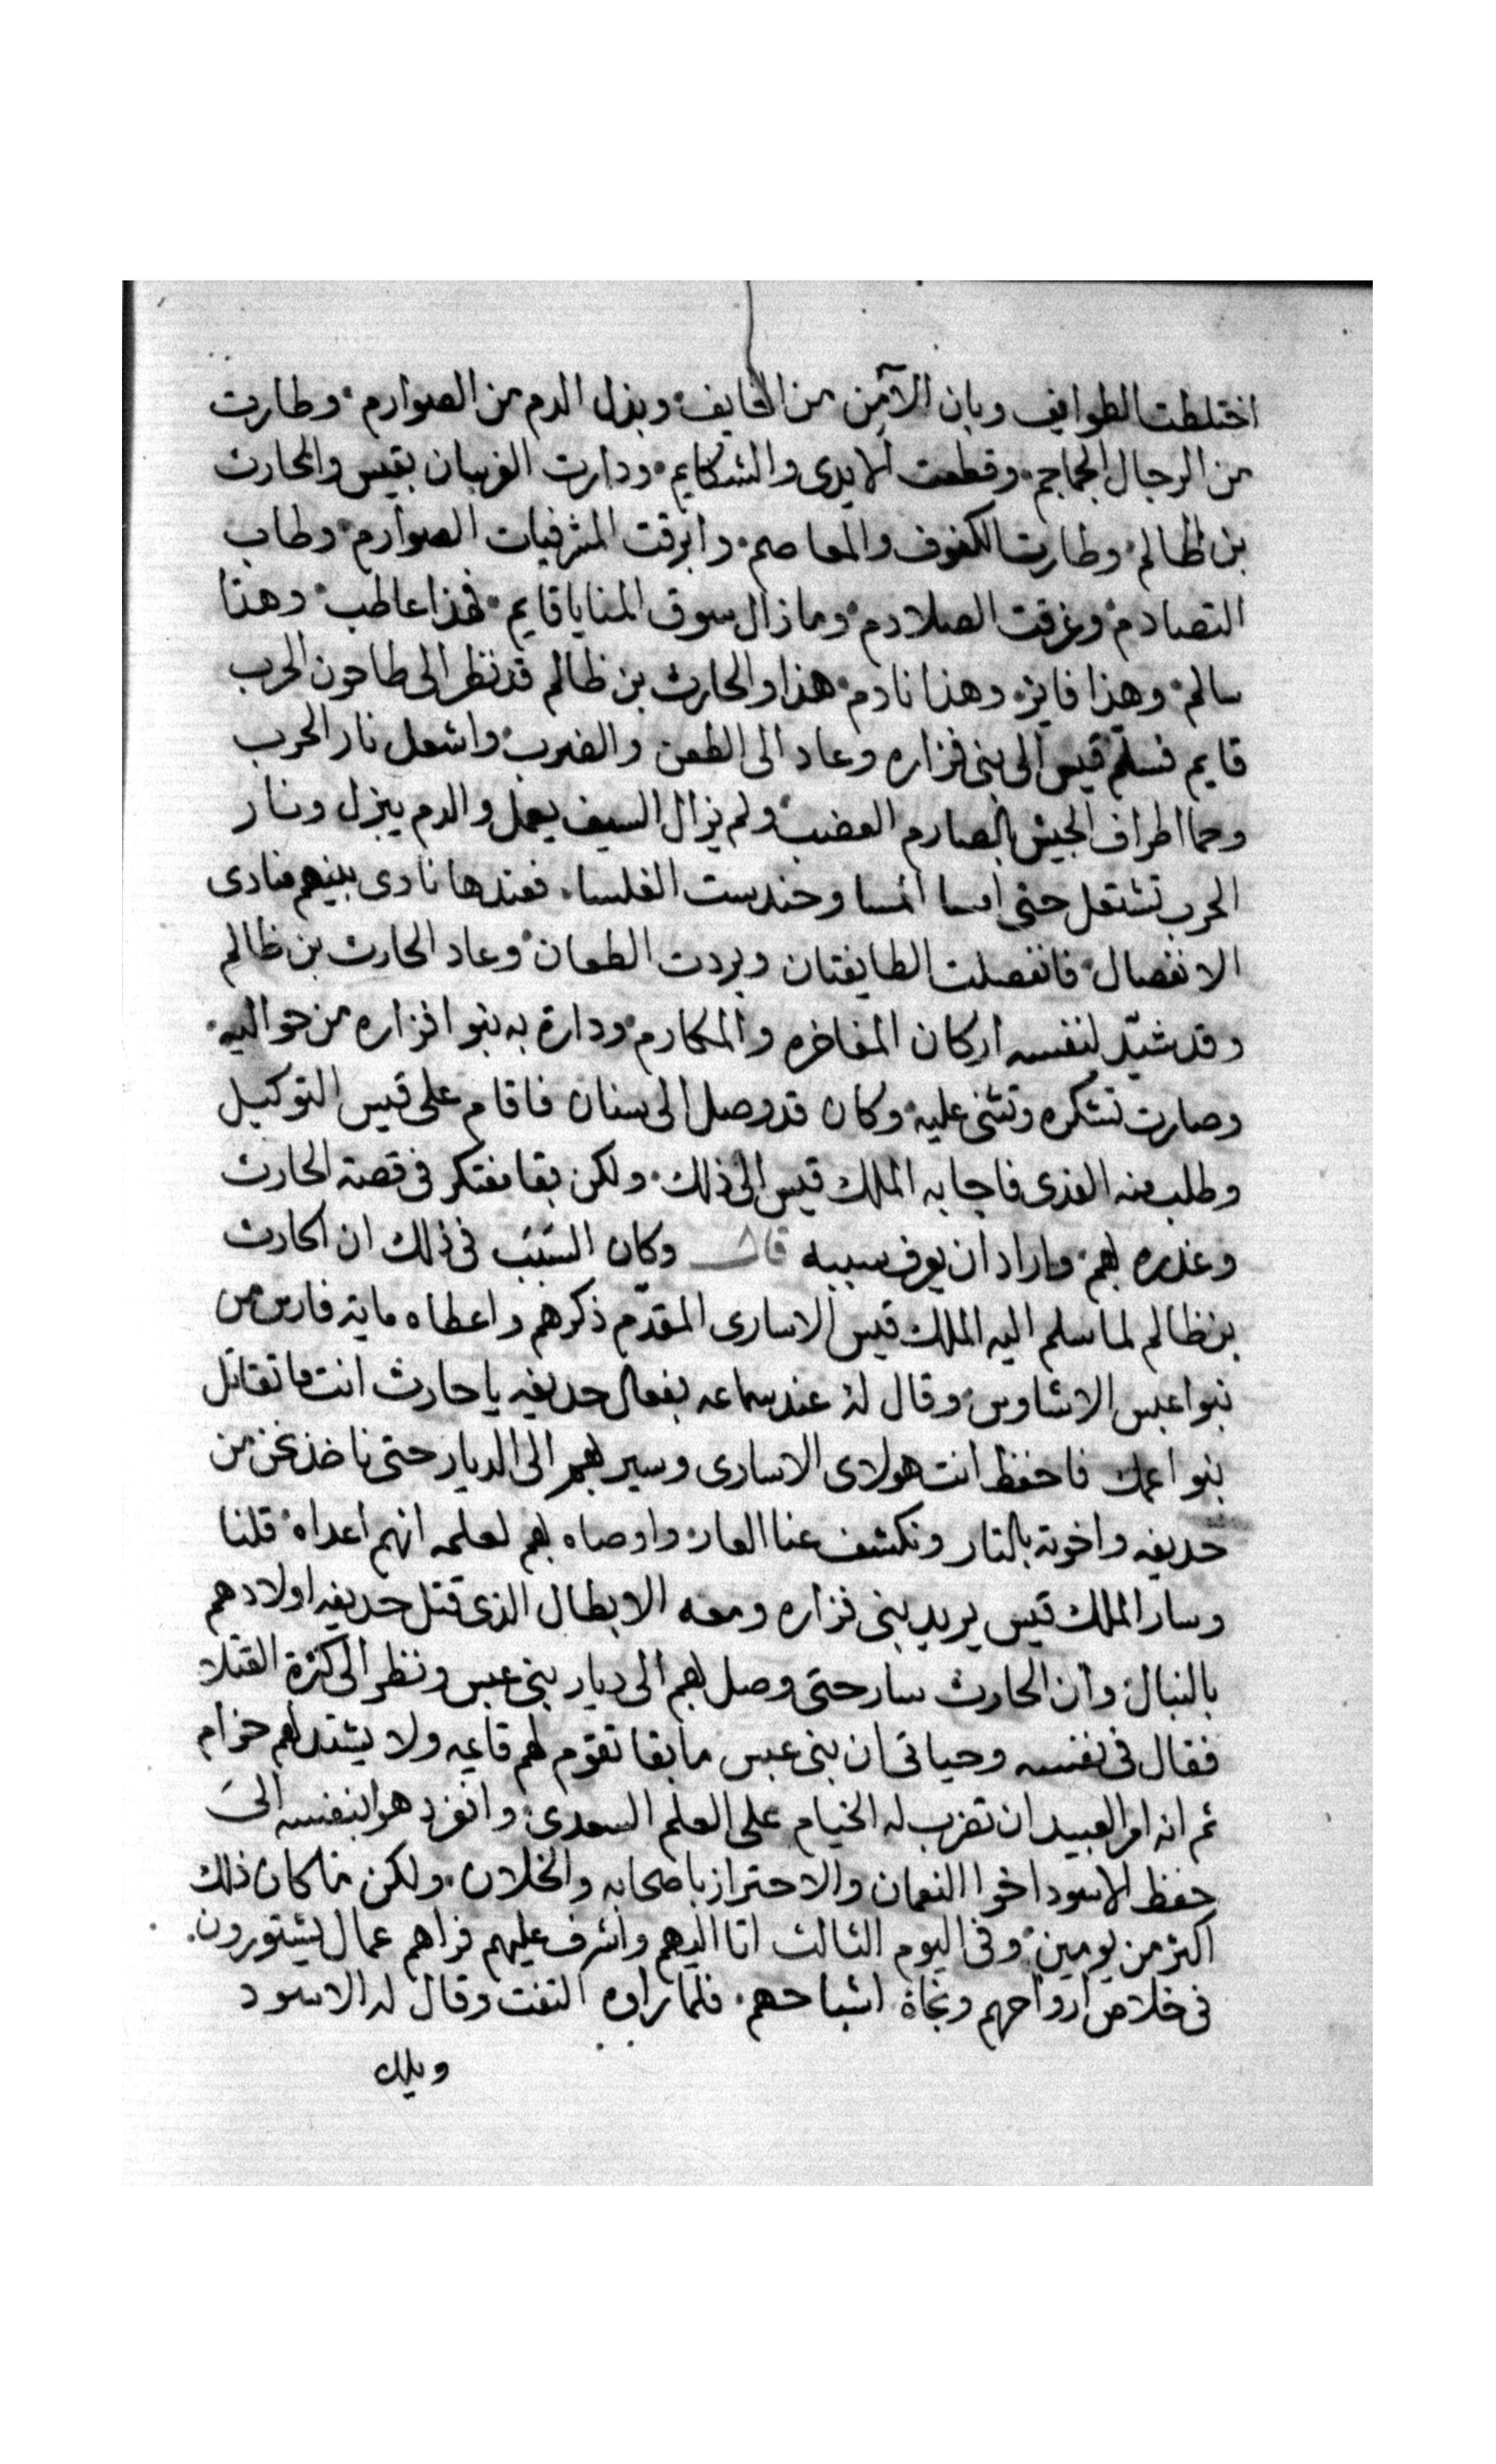 اختلطت الطوايف وبان الآمن من الخايف وبذل الدم من الصوارم وطارت
من الرجال الجماجم وقطعت الايدى والشكايم ودارت الفرسان بقيس والحارث
بن ظالم وطارت الكفوف والمعاصم وابرقت المشرفيات الصوارم وطاب
التصادم وغرقت الصلادم وما زال سوق المنايا قايم فهذا عاطب وهذا
سالم وهذا فايز وهذا نادم هذا والحارث بن ظالم قد نظر الى طاحون الحرب
قايم فسلّم قيس الى بنى فزاره وعاد الى الطعن والضرب واشعل نار الحرب
وحما اطراف الجيش بالصارم العضب ولم يزال السيف يعمل والدم ينزل ونار
الحرب تشتعل حتى امسا المسا وحندست الغلسا فعندها نادى بينهم منادى
الانفصال فانفصلت الطايفتان وبردت الطعان وعاد الحارث بن ظالم
وقد شيّد لنفسه اركان المفاخره والمكارم ودارة به بنوا فزاره من حواليه
وصارت تشكره وتثنى عليه وكان قد وصل الى سنان فاقام على قيس التوكيل
وطلب منه الفدى فاجابه الملك قيس الى ذلك ولكن بقا مفتكر فى قصة الحارث
وغدره بهم واراد ان يعرف سببه قال وكان السبب فى ذلك ان الحارث
بن ظالم لما سلم اليه الملك قيس الاسارى المقدّم ذكرهم واعطاه ماية فارس من
بنوا عبس الاشاوس وقال له عند سماعه بفعال حديفه يا حارث انت ما تقاتل
بنوا عمك فاحفظ انت هولاى الاسارى وسير بهم الى الديار حتى ناخذ نحن من
حديفه واخوته بالتار ونكشف عنا العار واوصاه بهم لعلمه انهم اعداه قلنا
وسار الملك قيس يريد بنى فزاره ومعه الابطال الذى قتل حديفه اولادهم
بالنبال وان الحارث سار حتى وصل بهم الى ديار بنى عبس ونظر الى كثرة القتلا
فقال فى نفسه وحياتى ان بنى عبس ما بقا تقوّم لهم قايمه ولا يشتد لهم حزام
ثم انه امر العبيد ان تضرب له الخيام على العلم السعدى وانفرد هوا بنفسه الى
حفظ الاسود اخوا النعمان والاحتراز باصحابه والخلان ولكن ما كان ذلك
اكثر من يومين وفى اليوم الثالث اتا اليهم واشرف عليهم فراهم عمال يشتورون
فى خلاص ارواحهم ونجاة اشباحهم فلما راوه التفت وقال له الاسود
ويلك